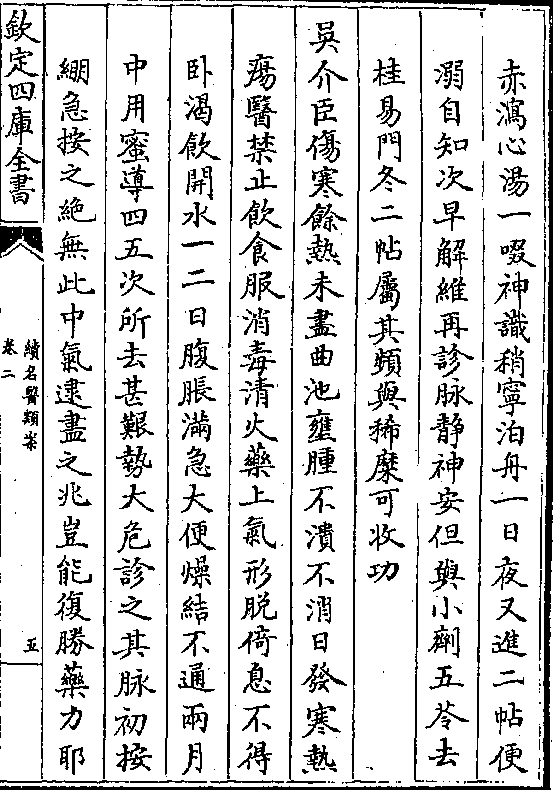 赤瀉心湯一啜神識稍寧泊舟一日夜又進二帖便
溺自知次早解維再診脉静神安但與小劑五苓去
桂易門冬二帖屬其頻與稀糜可收功
吳介臣傷寒餘熱未盡曲池壅腫不潰不消日發寒熱
瘍醫禁止飲食服消毒清火藥上氣形脱倚息不得
卧渴飲開水一二日腹脹滿急大便燥結不通兩月
中用蜜導四五次所去甚艱勢大危診之其脉初按
繃急按之絶無此中氣逮盡之兆豈能復勝藥力耶
欽定四庫全書
續名醫類案
卷二
五